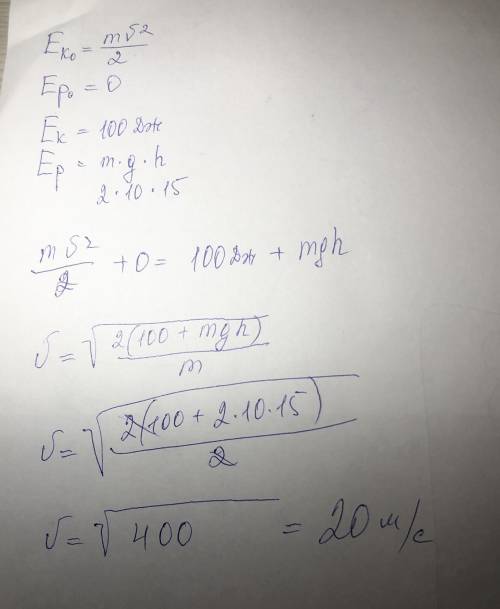 Eк₀ = mv²/2
Eр₀ = 0
Eк = 100 Дж
Eр = m·g·h
2·10·15
mv²/2 + 0 = 100 Дж + mgh
v = √(2(100 + mgh)/m)
v = √(2(100 + 2·10·15)/2)
v = √400 = 20 м/с